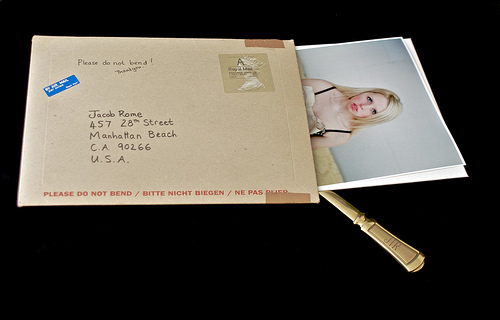 Please do not bend!
Thankyou
BY AIR MAIL
Royal Mail
Jacob Rome
457 28th Street
Manhattan Beach
C.A. 90266
U.S.A.
PLEASE DO NOT BEND / BITTE NICHT BIEGEN / NE PAS PLIER